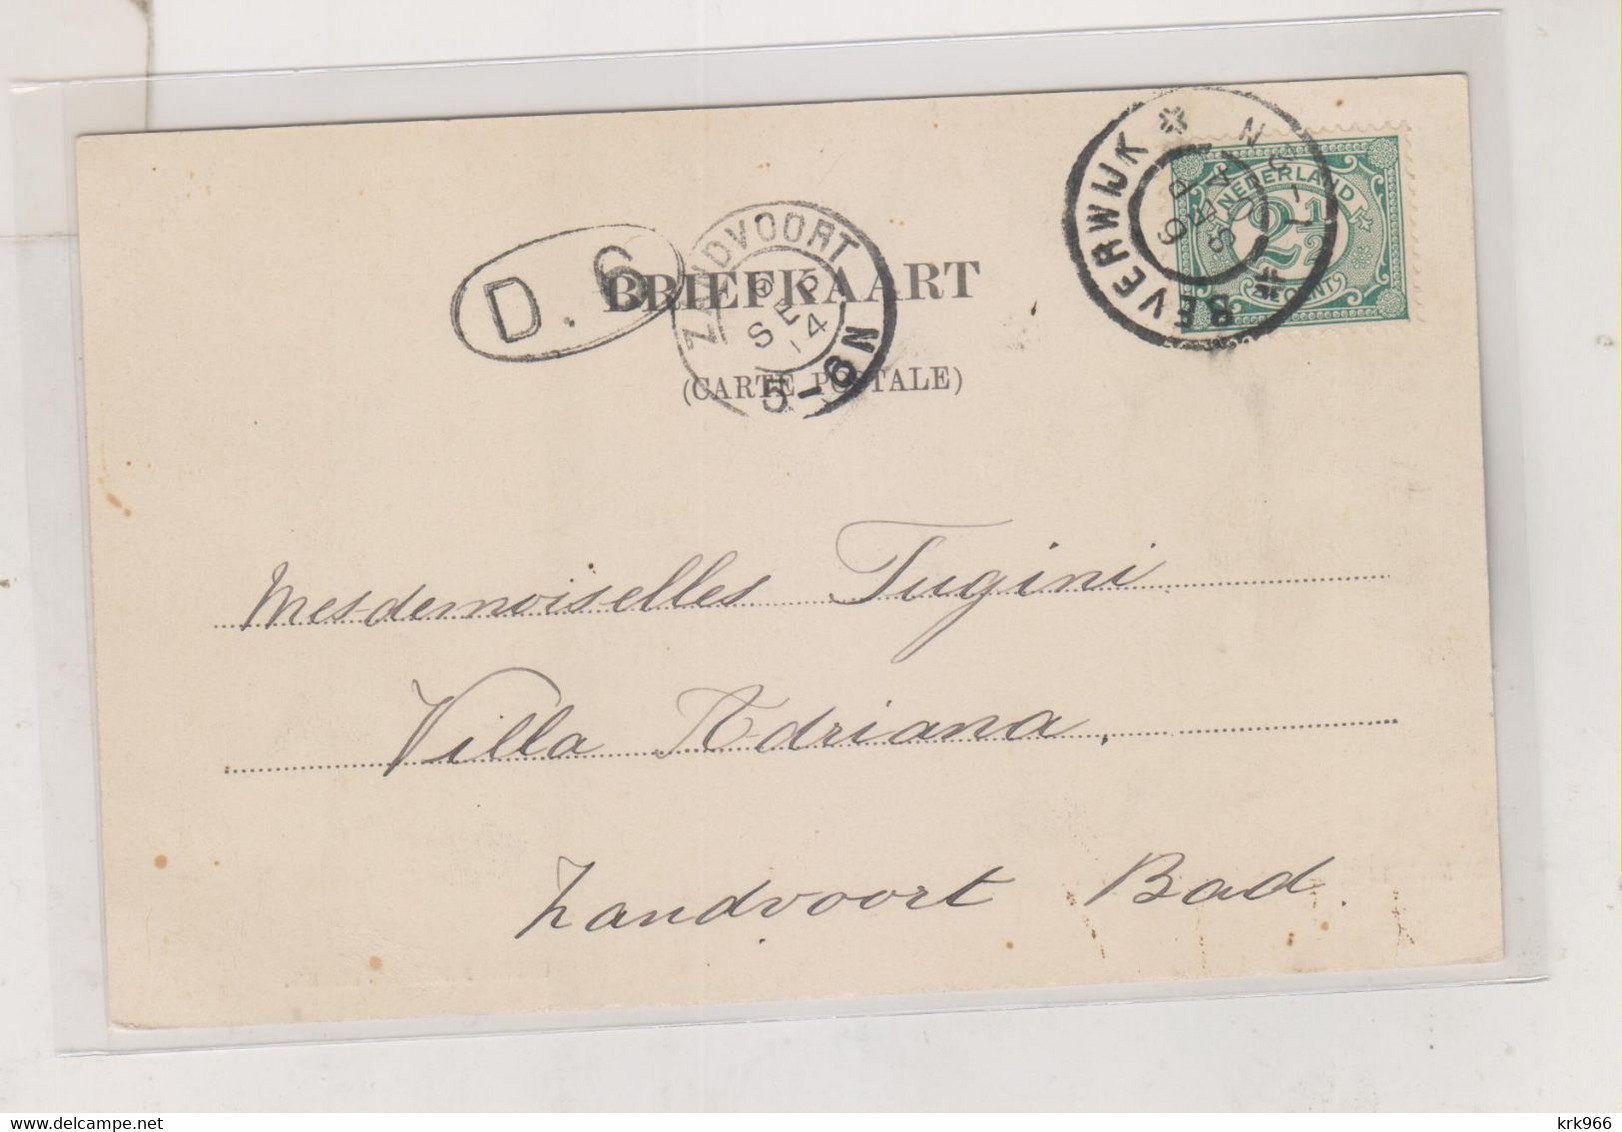 D. 6
BRIEFKAART
(CARTE POSTALE)
ZANDVOORT
SEP
5-6N
BEVERWIJK
NEDERLAND
2½
CENT
Mesdemoiselles Tugini
Villa Adriana,
Zandvoort Bad.
krk966